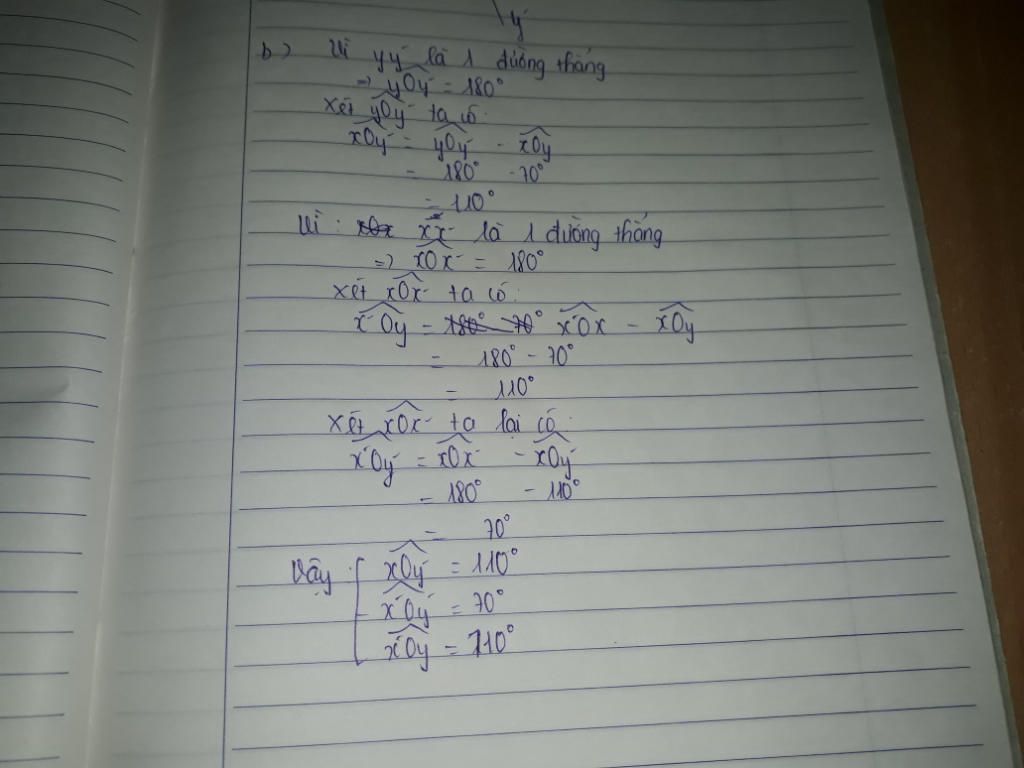 y'
b) Vì yy' là 1 đường thẳng
=> yOy' = 180°
Xét yOy' ta có:
xOy' = yOy' - xOy
= 180° - 70°
= 110°
Vì: xOx xx' là 1 đường thẳng
=> xOx' = 180°
Xét xOx' ta có:
x'Oy = 180° - 70° x'Ox - xOy
= 180° - 70°
= 110°
Xét xOx' ta lại có:
x'Oy' = xOx' - xOy'
= 180° - 110°
= 70°
Vậy: xOy' = 110°
x'Oy' = 70°
x'Oy = 110°